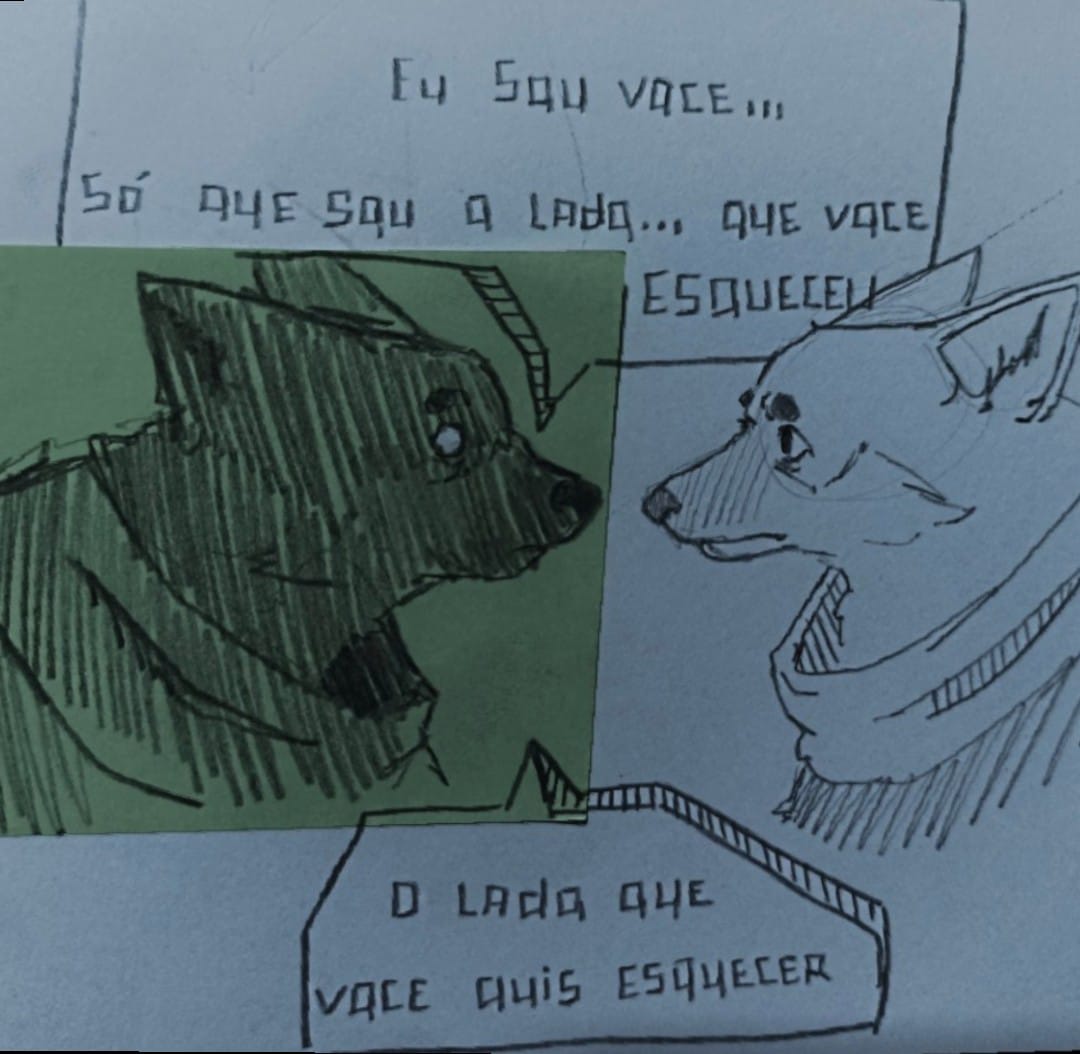 EU SOU VOCE...
SÓ QUE SOU O LADO... QUE VOCE
ESQUECEU
O LADO QUE
VOCE QUIS ESQUECER